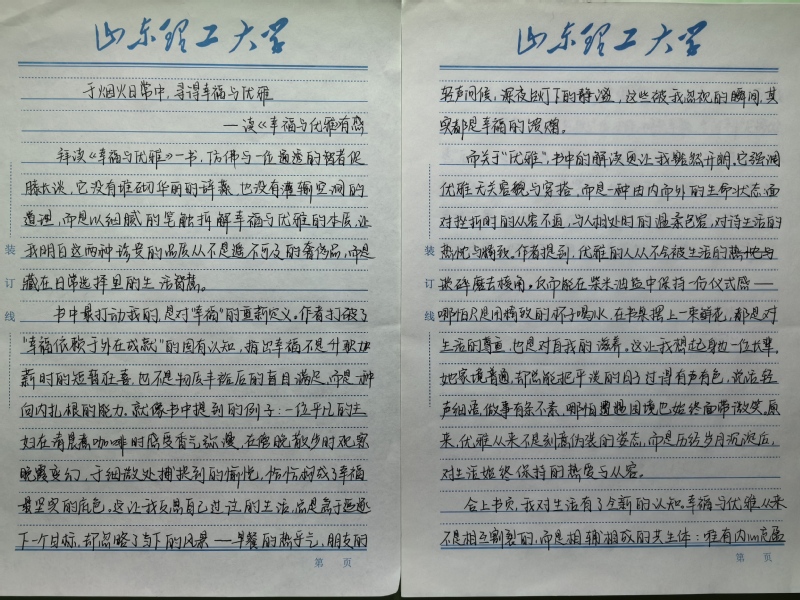 山东理工大学
于烟火日常中,寻得幸福与优雅
——读《幸福与优雅》有感
拜读《幸福与优雅》一书,仿佛与一位通透的智者促
膝长谈,它没有堆砌华丽的辞藻,也没有灌输空洞的
道理,而是以细腻的笔触拆解幸福与优雅的本质,让
我明白这两种珍贵的品质从不是遥不可及的奢侈品,而是
藏在日常选择里的生活智慧。
书中最打动我的,是对“幸福”的重新定义。作者打破了
“幸福依赖于外在成就”的固有认知,指出幸福不是升职加
薪时的短暂狂喜,也不是物质丰裕后的盲目满足,而是一种
向内扎根的能力。就像书中提到的例子:一位平凡的主
妇在清晨煮咖啡时感受香气弥漫,在傍晚散步时观察
晚霞变幻,于细微处捕捉到的愉悦,恰恰构成了幸福
最坚实的底色。这让我反思自己过往的生活,总是急于追逐
下一个目标,却忽略了当下的风景——早餐的热乎气,朋友的
装
订
线
第 页
山东理工大学
轻声问候,深夜台灯下的静谧,这些被我忽视的瞬间,其
实都是幸福的馈赠。
而关于“优雅”,书中的解读更让我豁然开朗。它强调
优雅无关容貌与穿搭,而是一种由内而外的生命状态,面
对挫折时的从容不迫,与人相处时的温柔包容,对待生活的
热忱与精致。作者提到,优雅的人从不会被生活的热忱与
琐碎磨去棱角,反而能在柴米油盐中保持一份仪式感——
哪怕只是用精致的杯子喝水,在书桌摆上一束鲜花,都是对
生活的尊重,也是对自我的滋养。这让我想起身边一位长辈,
她家境普通,却总能把平淡的日子过得有声有色,说话轻
声细语,做事有条不紊,哪怕遭遇困境也始终面带微笑。原
来,优雅从来不是刻意伪装的姿态,而是历经岁月沉淀后,
对生活始终保持的热爱与从容。
合上书页,我对生活有了全新的认知。幸福与优雅从来
不是相互割裂的,而是相辅相成的共生体:唯有内心充盈
装
订
线
第 页